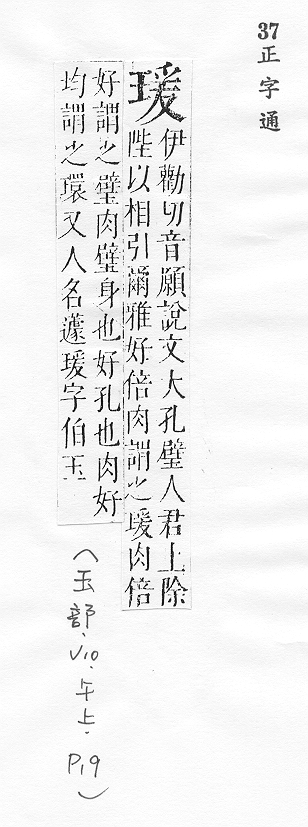 37正字通
瑗
伊勸切音願說文大孔璧人君上除
陛以相引爾雅好倍肉謂之瑗肉倍
好謂之璧肉璧身也好孔也肉好
均謂之環又人名蘧瑗字伯玉
(玉部.V10.午上.P.19)